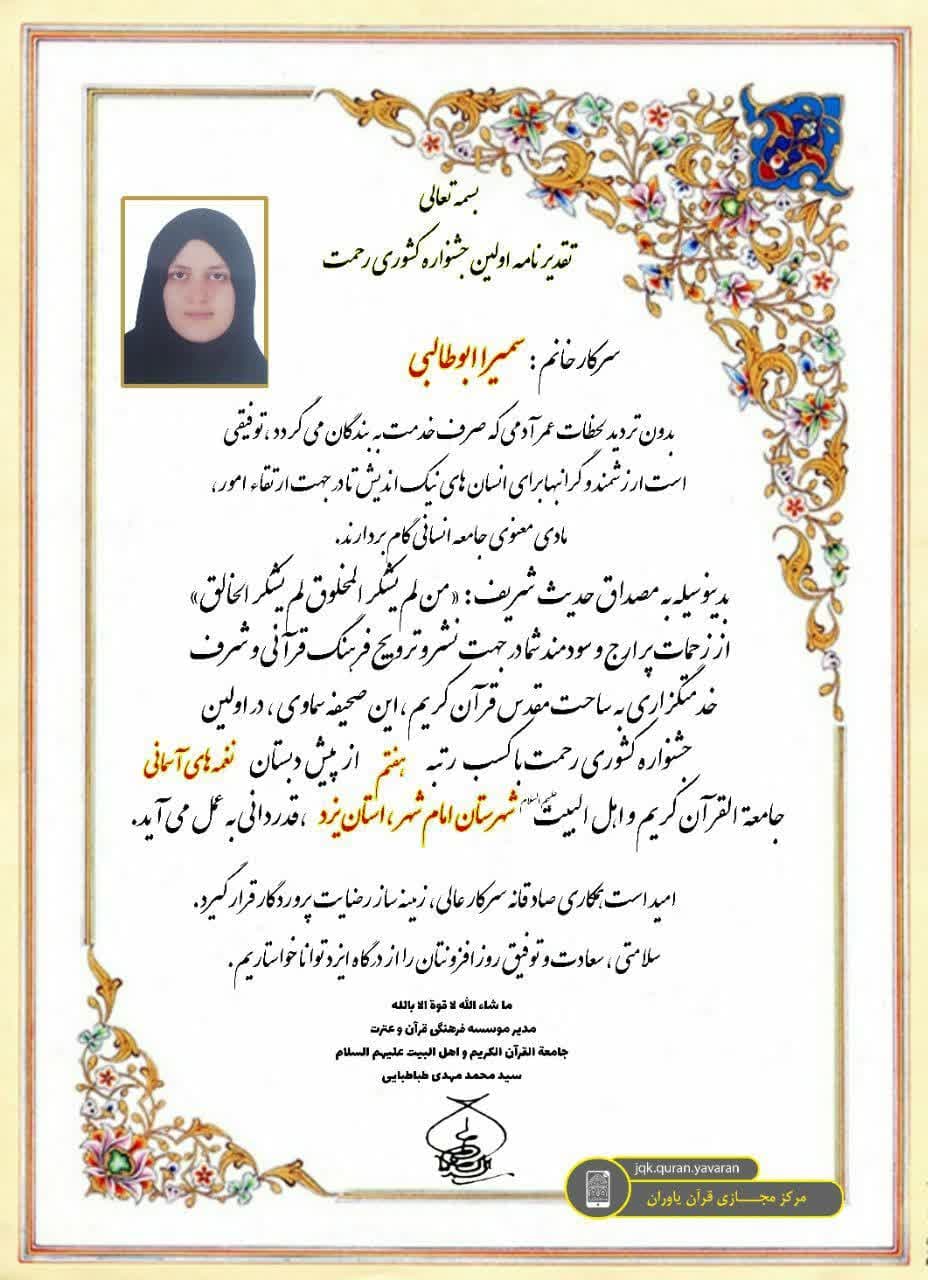 بسمه تعالی
تقدیرنامه اولین جشنواره کشوری رحمت
سرکار خانم : سمیرا ابوطالبی
بدون تردید لحظات عمر آدمی که صرف خدمت به بندگان می گردد ، توفیقی
است ارزشمند و گرانبها برای انسان های نیک اندیش تا در جهت ارتقاء امور ،
مادی معنوی جامعه انسانی گام بردارند.
بدینوسیله به مصداق حدیث شریف : «من لم یشکر المخلوق لم یشکر الخالق»
از زحمات پر ارج و سودمند شما در جهت نشر و ترویج فرهنگ قرآنی و شرف
خدمتگزاری به ساحت مقدس قرآن کریم ، این صحیفه سماوی ، در اولین
جشنواره کشوری رحمت با کسب رتبه هفتم از پیش دبستان نغمه های آسمانی
جامعة القرآن کریم و اهل البیت علیهم السلام شهرستان امام شهر ، استان یزد ، قدردانی به عمل می آید.
امید است همکاری صادقانه سرکار عالی، زمینه ساز رضایت پروردگار قرار گیرد.
سلامتی ، سعادت و توفیق روز افزونتان را از درگاه ایزد توانا خواستاریم.
ما شاء الله لا قوة الا بالله
مدیر موسسه فرهنگی قرآن و عترت
جامعة القرآن الکریم و اهل البیت علیهم السلام
سید محمد مهدی طباطبایی
jqk.quran.yavaran
مرکز مجازی قرآن یاوران